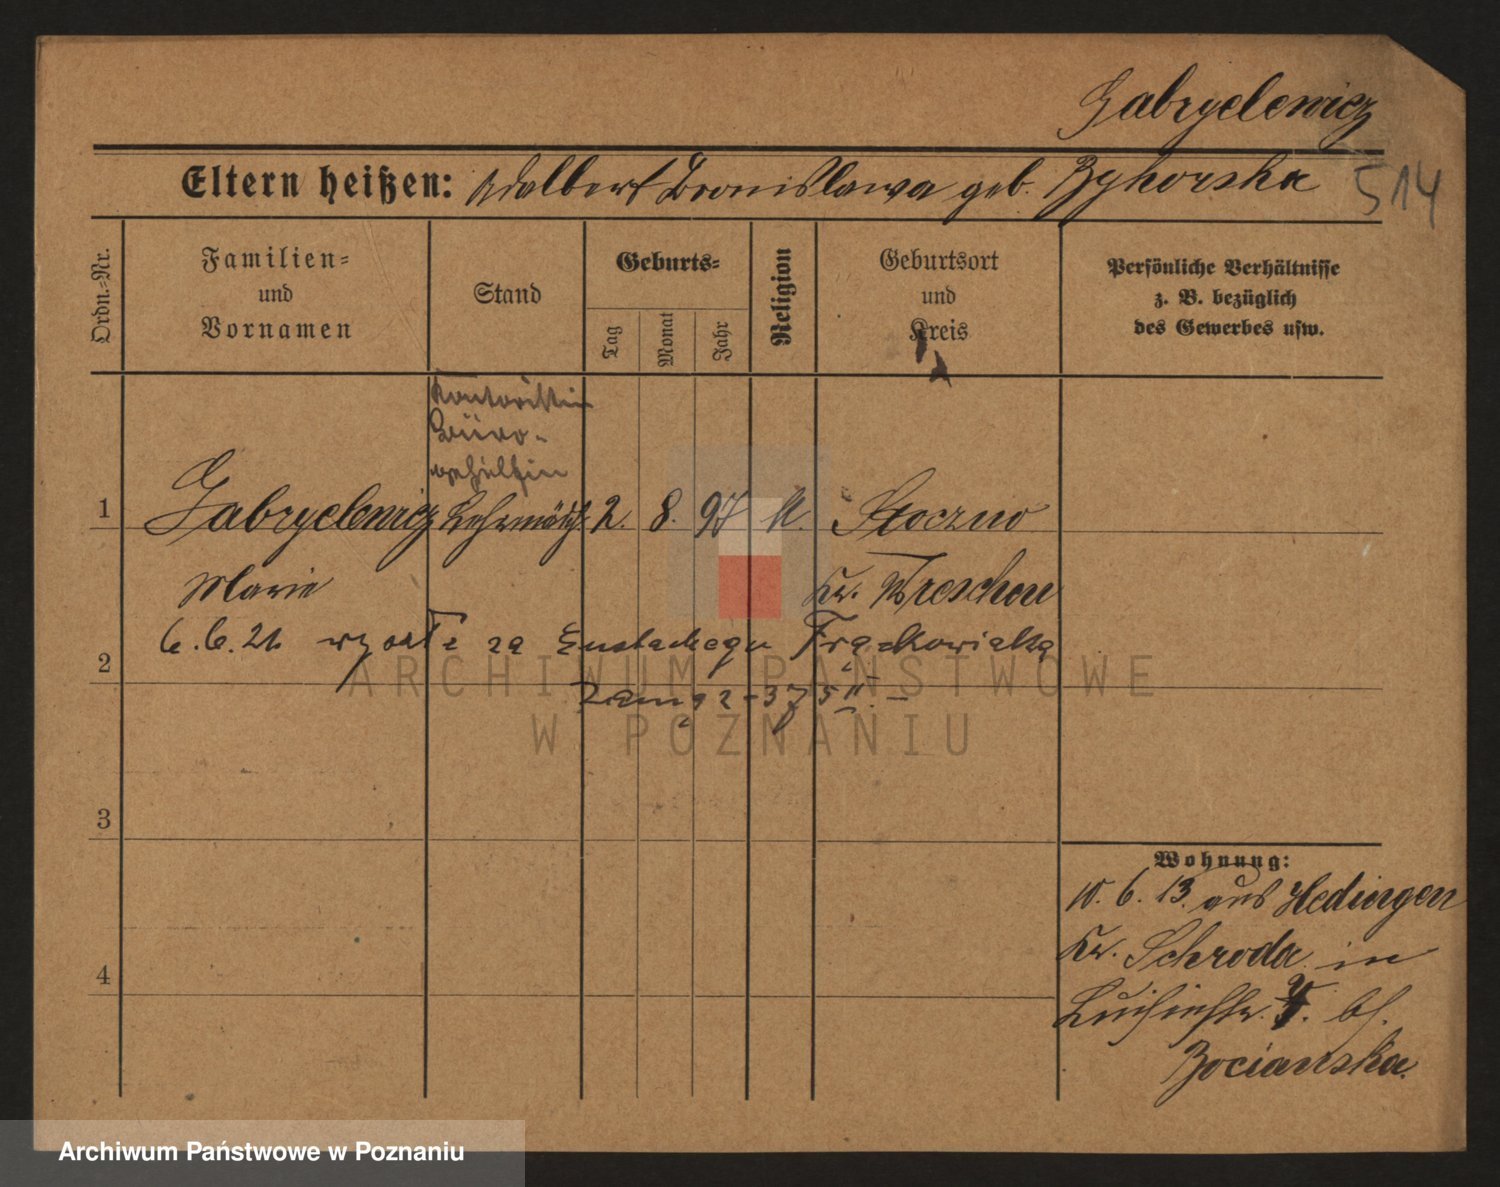 Gabryelewicz
Eltern heißen: Adalbert Bronislawa geb. Bykorska 514
Ordn.-Nr.
Familien-
und
Vornamen
Stand
Geburts-
Tag
Monat
Jahr
Religion
Geburtsort
und
Kreis
Persönliche Verhältnisse
z. B. bezüglich
des Gewerbes usw.
Kontoristin
Büro-
gehülfin
1 Gabryelewicz Lehrmädch. 2. 8. 97 k. Stoczno
Marie Kr. Wreschen
6.6.21 wyszła za Eustachego Frąckowiaka
2
zam. 37
3
4
Wohnung:
10. 6. 13. aus Hedingen
Kr. Schroda in
Luisenstr. 7. bf.
Bocianska.
ARCHIWUM PAŃSTWOWE
W POZNANIU
Archiwum Państwowe w Poznaniu